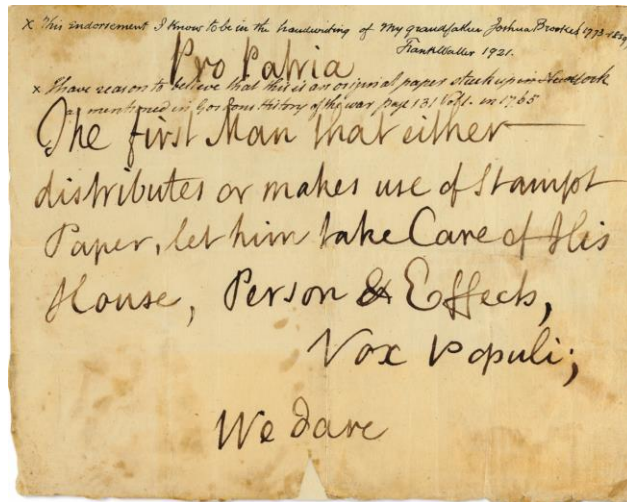 x This endorsement I know to be in the handwriting of my grandfather Joshua Brookes 1773-1859
Frank Waller 1921.
Pro Patria
x I have reason to believe that this is an original paper stuck up in New York
as mentioned in Gordons History of the war page 131 Vol 1. in 1765
The first Man that either
distributes or makes use of Stampt
Paper, let him take Care of His
House, Person & Effects,
Vox Populi;
We dare